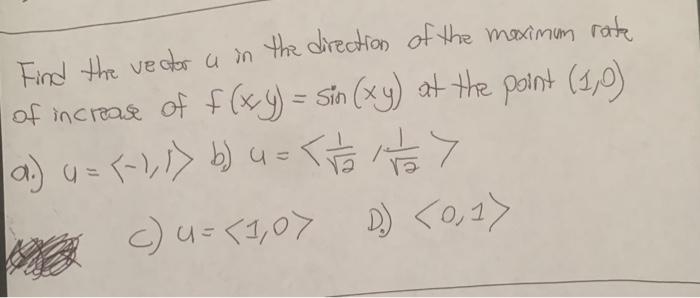 Find the vector u in the direction of the maximum rate
of increase of f(x,y) = sin(xy) at the point (1,0)
a.) u = <-1,1> b) u = <1/√2, 1/√2>
c) u = <1,0> D.) <0,1>